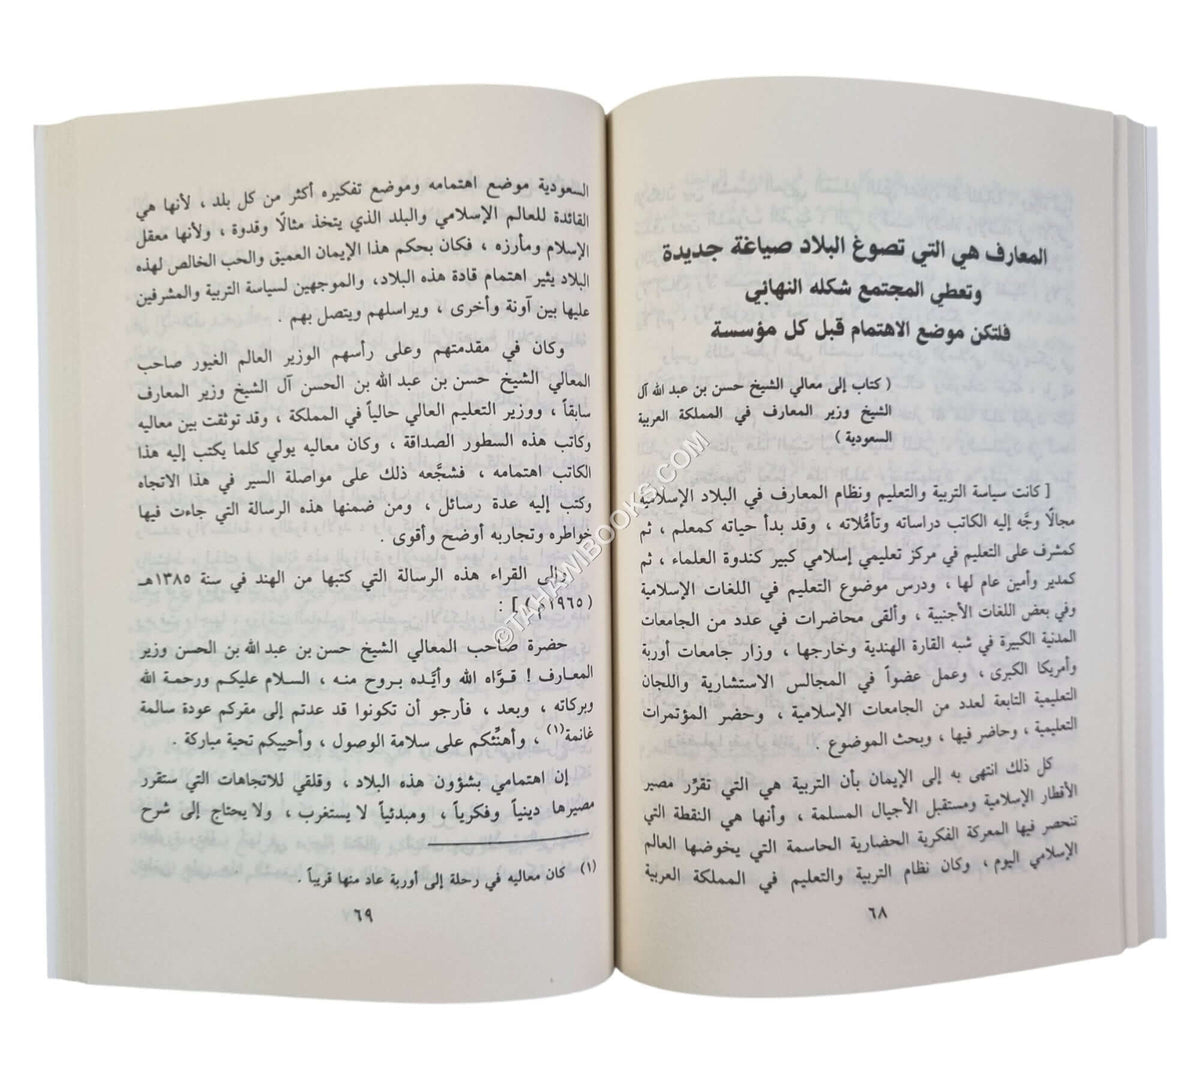 المعارف هي التي تصوغ البلاد صياغة جديدة
وتعطي المجتمع شكله النهائي
فلتكن موضع الاهتمام قبل كل مؤسسة
( كتاب إلى معالي الشيخ حسن بن عبد الله آل
الشيخ وزير المعارف في المملكة العربية
السعودية )
[ كانت سياسة التربية والتعليم ونظام المعارف في البلاد الإسلامية
مجالًا وجَّه إليه الكاتب دراساته وتأمُّلاته ، وقد بدأ حياته كمعلم ، ثم
كمشرف على التعليم في مركز تعليمي إسلامي كبير كندوة العلماء ، ثم
كمدير وأمين عام لها ، ودرس موضوع التعليم في اللغات الإسلامية
وفي بعض اللغات الأجنبية ، وألقى محاضرات في عدد من الجامعات
المدنية الكبيرة في شبه القارة الهندية وخارجها ، وزار جامعات أوربة
وأمريكا الكبرى ، وعمل عضواً في المجالس الاستشارية واللجان
التعليمية التابعة لعدد من الجامعات الإسلامية ، وحضر المؤتمرات
التعليمية ، وحاضر فيها ، وبحث الموضوع .
كل ذلك انتهى به إلى الإيمان بأن التربية هي التي تقرِّر مصير
الأقطار الإسلامية ومستقبل الأجيال المسلمة ، وأنها هي النقطة التي
تنحصر فيها المعركة الفكرية الحضارية الحاسمة التي يخوضها العالم
الإسلامي اليوم ، وكان نظام التربية والتعليم في المملكة العربية
٦٨
السعودية موضع اهتمامه وموضع تفكيره أكثر من كل بلد ، لأنها هي
القائدة للعالم الإسلامي والبلد الذي يتخذ مثالًا وقدوة ، ولأنها معقل
الإسلام ومأرزه ، فكان بحكم هذا الإيمان العميق والحب الخالص لهذه
البلاد يثير اهتمام قادة هذه البلاد، والموجهين لسياسة التربية والمشرفين
عليها بين آونة وأخرى ، ويراسلهم ويتصل بهم .
وكان في مقدمتهم وعلى رأسهم الوزير العالم الغيور صاحب
المعالي الشيخ حسن بن عبد الله بن الحسن آل الشيخ وزير المعارف
سابقاً ، ووزير التعليم العالي حالياً في المملكة ، وقد توثقت بين معاليه
وكاتب هذه السطور الصداقة ، وكان معاليه يولي كلما يكتب إليه هذا
الكاتب اهتمامه ، فشجَّعه ذلك على مواصلة السير في هذا الاتجاه
وكتب إليه عدة رسائل ، ومن ضمنها هذه الرسالة التي جاءت فيها
خواطره وتجاربه أوضح وأقوى .
وإلى القراء هذه الرسالة التي كتبها من الهند في سنة ١٣٨٥هـ
( ١٩٦٥م ) ] :
حضرة صاحب المعالي الشيخ حسن بن عبد الله بن الحسن وزير
المعارف ! قوَّاه الله وأيَّده بروح منه ، السلام عليكم ورحمة الله
وبركاته ، وبعد ، فأرجو أن تكونوا قد عدتم إلى مقركم عودة سالمة
غانمة(١) ، وأهنِّئكم على سلامة الوصول ، وأحييكم تحية مباركة .
إن اهتمامي بشؤون هذه البلاد ، وقلقي للاتجاهات التي ستقرر
مصيرها دينياً وفكرياً ، ومبدئياً لا يستغرب ، ولا يحتاج إلى شرح
(١) كان معاليه في رحلة إلى أوربة عاد منها قريباً .
٦٩
©TAHANIBOOKS.COM